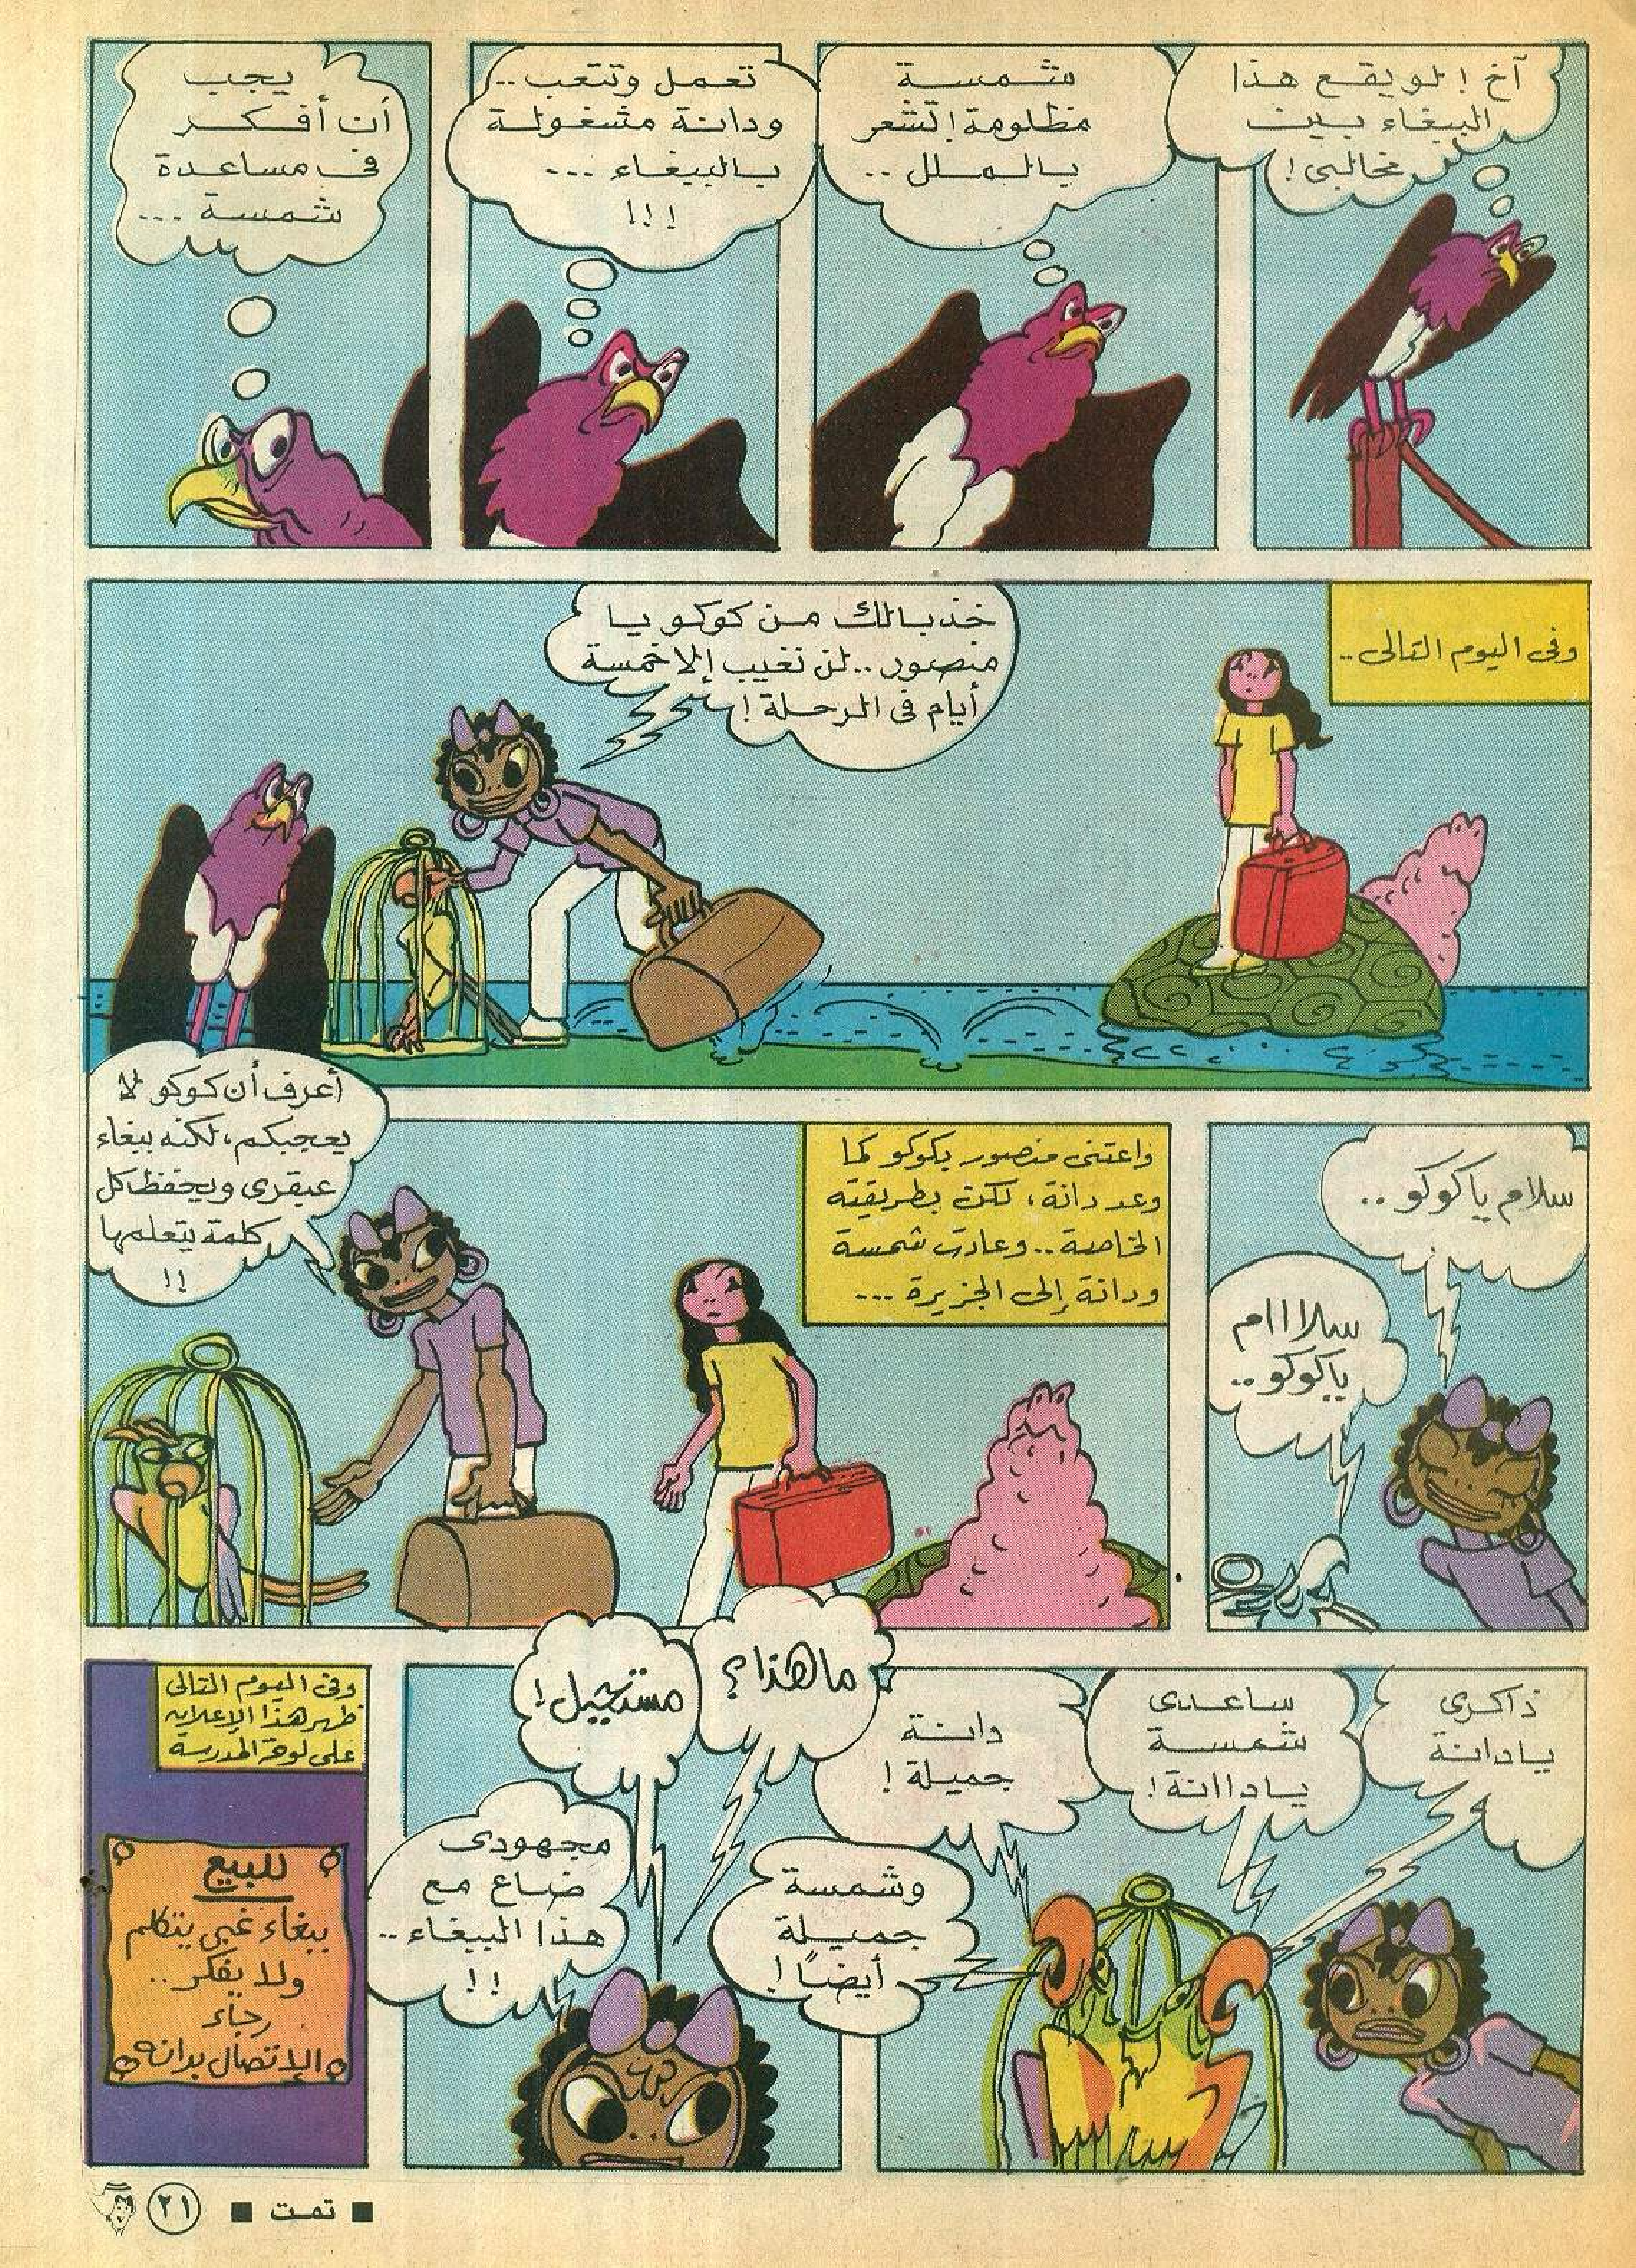 آخ ! لو يقع هذا
الببغاء بين
مخالبي !
شمسة
مظلومة! تشعر
بالملل ..
تعمل وتتعب ..
ودانة مشغولة
بالببغاء ...
!!!
يجب
أن أفكر
في مساعدة
شمسة ...
وفى اليوم التالى ..
خذ بالك من كوكو يا
منصور .. لن نغيب إلا خمسة
أيام فى الرحلة !
سلام يا كوكو ..
سلاااام
ياكوكو ..
واعتنى منصور بكوكو كما
وعد دانة ، لكن بطريقته
الخاصة .. وعادت شمسة
ودانة إلى الجزيرة ...
أعرف أن كوكو لا
يعجبكم ، لكنه ببغاء
عبقرى ويحفظ كل
كلمة يتعلمها
!!
ذاكرى
يا دانة
ساعدى
شمسة
يا داانة !
دانة
جميلة !
وشمسة
جميلة
أيضًا !
ما هذا ؟
مستحيل !
مجهودى
ضاع مع
هذا الببغاء ..
!!
وفى اليوم التالى
ظهر هذا الإعلان
على لوحة المدرسة
للبيع
ببغاء غبى يتكلم
ولا يفكر ..
رجاء
الإتصال بدانه
■ تمت ■ ٢١